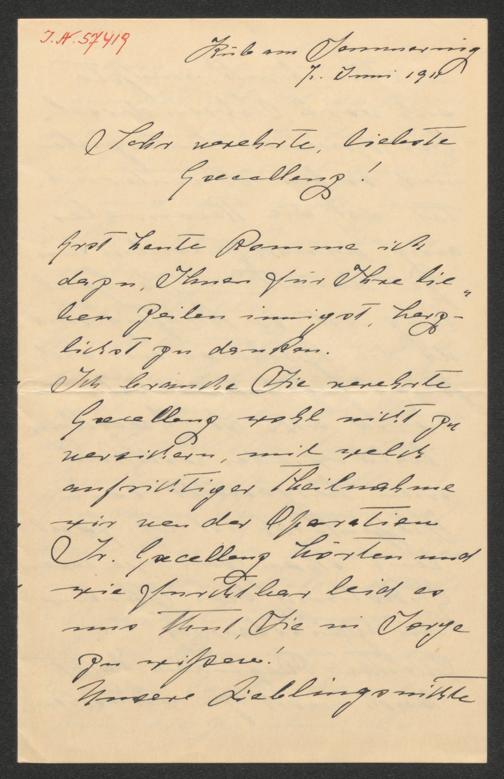 I.N. 57419
Küb am Semmering
7. Juni 191
Sehr verehrte, liebste
Excellenz!
Erst heute komme ich
dazu, Ihnen für Ihre lie-
ben Zeilen innigst, herz-
lichst zu danken.
Ich brauche Sie verehrte
Excellenz wohl nicht zu
versichern, mit welch
aufrichtiger Theilnahme
wir von der Operation
Sr. Excellenz hörten und
wie furchtbar leid es
uns thut, Sie in Sorge
zu wissen!
Unsere Lieblingsnichte